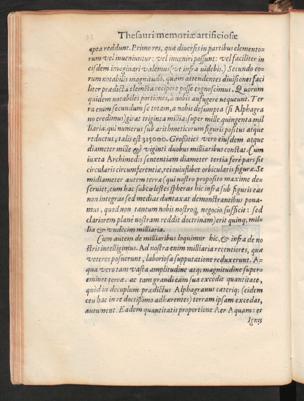 Thesauri memoriæ artificiosæ
apta reddunt. Primo res, quæ diversis in partibus elemento-
rum vel inveniuntur: vel inveniri possunt: vel faciliter in
eisdem imaginari valemus (ut infra videbis.) Secundo eo-
rum notabilis magnitudo, quam attendentes divisiones faci
liter prædicta elementa recipere posse cognoscimus. Quorum
quidem notabiles portiones, a nobis aufugere nequeunt. Ter
ra enim secundum se totam, a nobis desumpta (si Alphagra
no credimus) giras triginta millia: super mille quingenta mil
liaria: qui numerus sub arithmeticorum figuris positus atque
reductus, talis est 31500. Grossities vero eiusdem atque
diameter mille & viginti duobus milliaribus constat. Cum
iuxta Archimedis sententiam diameter tertia fere pars sit
circularis circumferentiæ, rei cuiuslibet orbicularis figuræ. Se
midiameter autem terræ (qui nostro proposito maxime de-
serviet, cum hac sub cælestes spheras hic infra sub figuris
non integras sed medias duntaxat demonstrantibus pona-
mus, quod non tantum nobis nostroque negocio sufficit: sed
clariorem plane nostram reddit doctrinam) erit quinque mil-
lia & undecim milliaria.
Cum autem de milliaribus loquimur hic, & infra de no
stris intelligimus. Ad nostra enim milliaria recentiores, quæ
veteres posuerunt, laboriosa supputatione reduxerunt. A-
qua vero tam vasta amplitudine atque magnitudine supere
minet terræ: ac tam grandi eam sua excedit quantitate,
quod in decuplum prædictus Alphagranus cæterique (eidem
ceu hac in re doctissimo adhærentes) terram ipsam excedat,
autument. Eadem quantitatis proportione Aer Aquam: et
Ignis